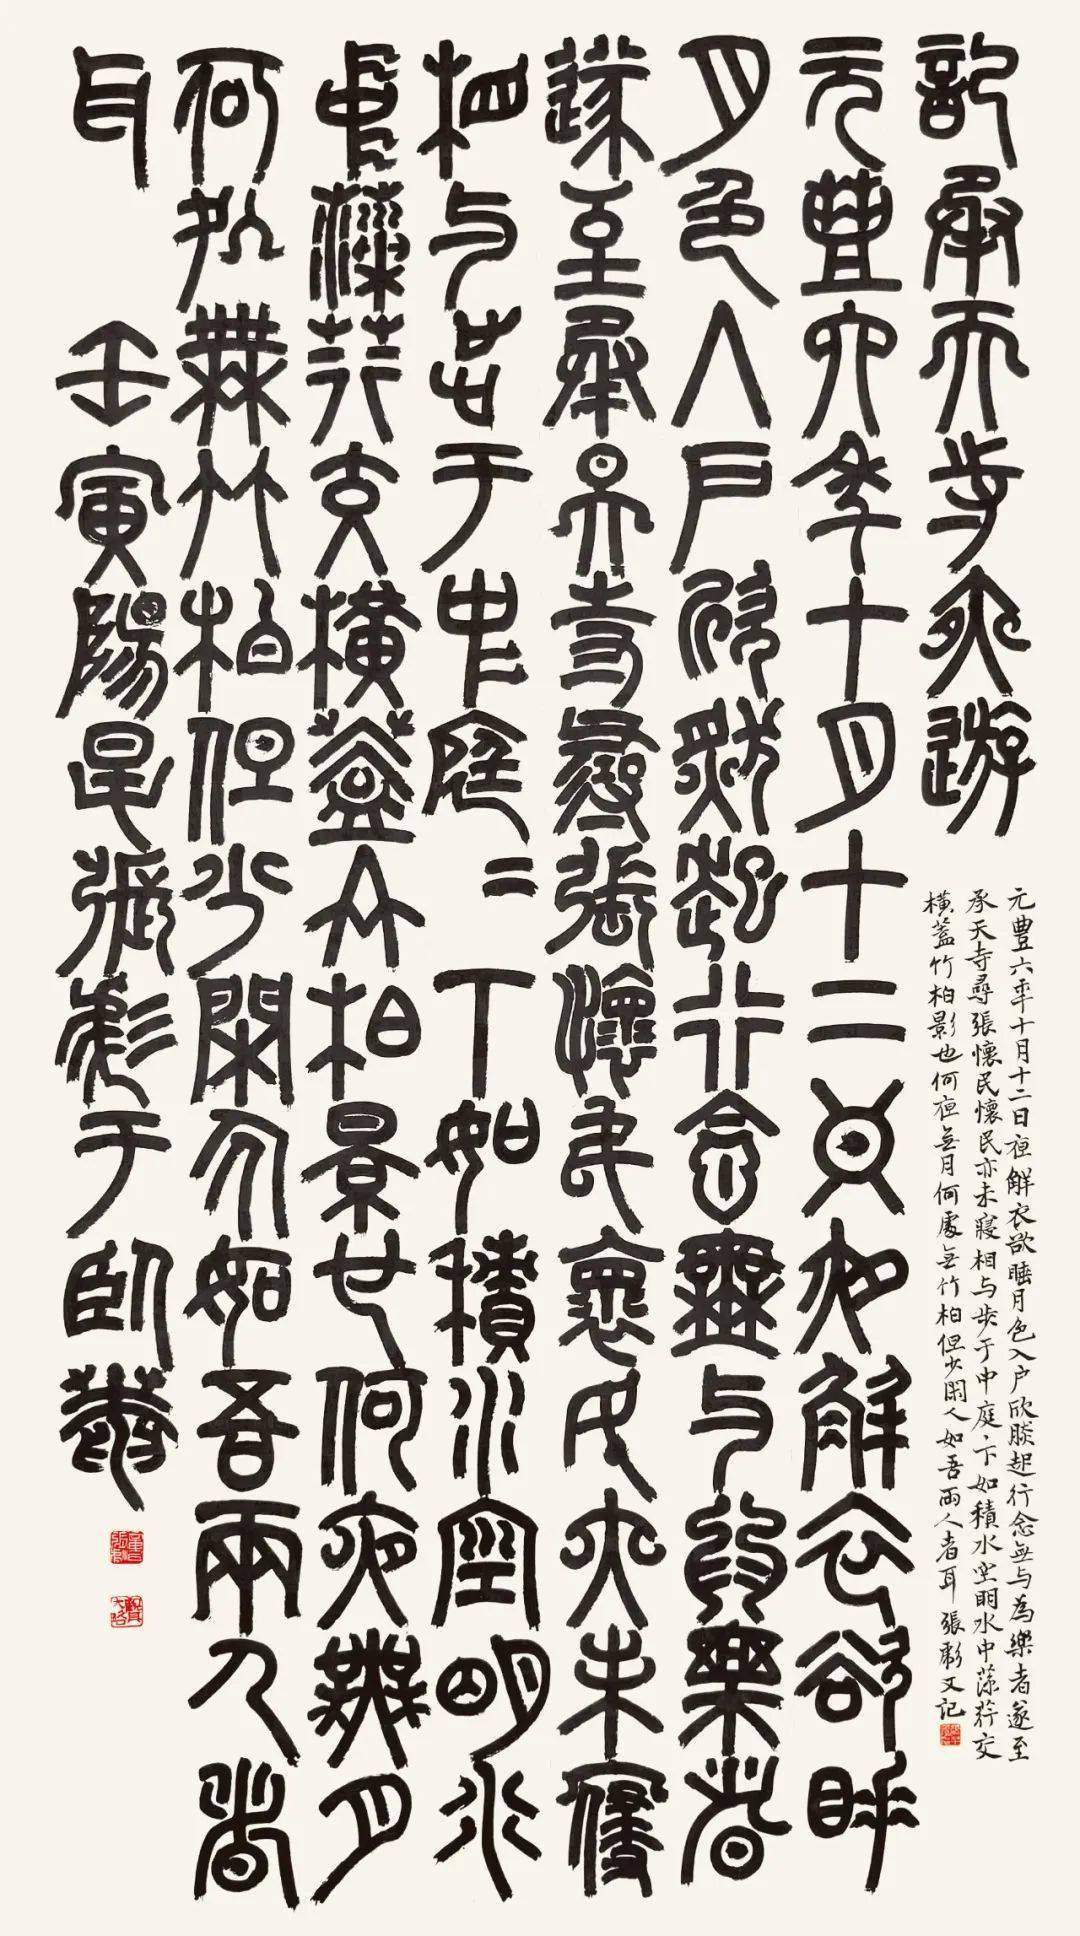 記承天寺夜遊
元豐六年十月十二日夜解衣欲睡
月色入戶欣然起行念無与為樂者
遂至承天寺尋張懷民懷民亦未寢
相与步于中庭二下如積水空明水
中藻荇交橫蓋竹柏景也何夜無月
何處無竹柏但少閑人如吾兩人者
耳 壬寅陽張于臥
元豐六年十月十二日夜解衣欲睡月色入户欣然起行念無与為樂者遂至
承天寺尋張懷民懷民亦未寢相与步于中庭、下如積水空明水中藻荇交
橫蓋竹柏影也何夜無月何處無竹柏但少閑人如吾兩人者耳 張又記